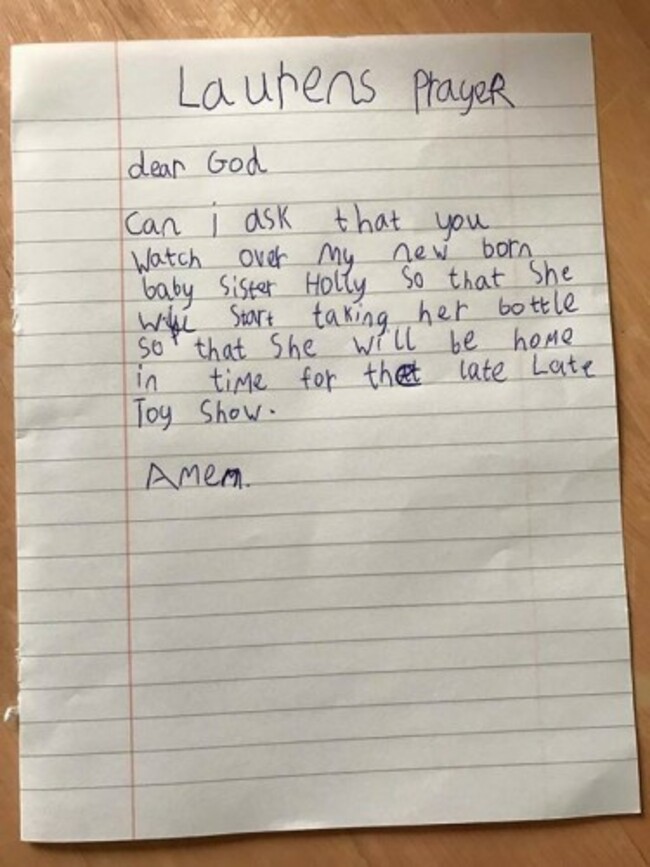 Laurens Prayer
dear God
Can i ask that you
Watch over My new born
baby Sister Holly So that She
will Start taking her bottle
So that She will be home
in time for the late Late
Toy Show.
Amen.